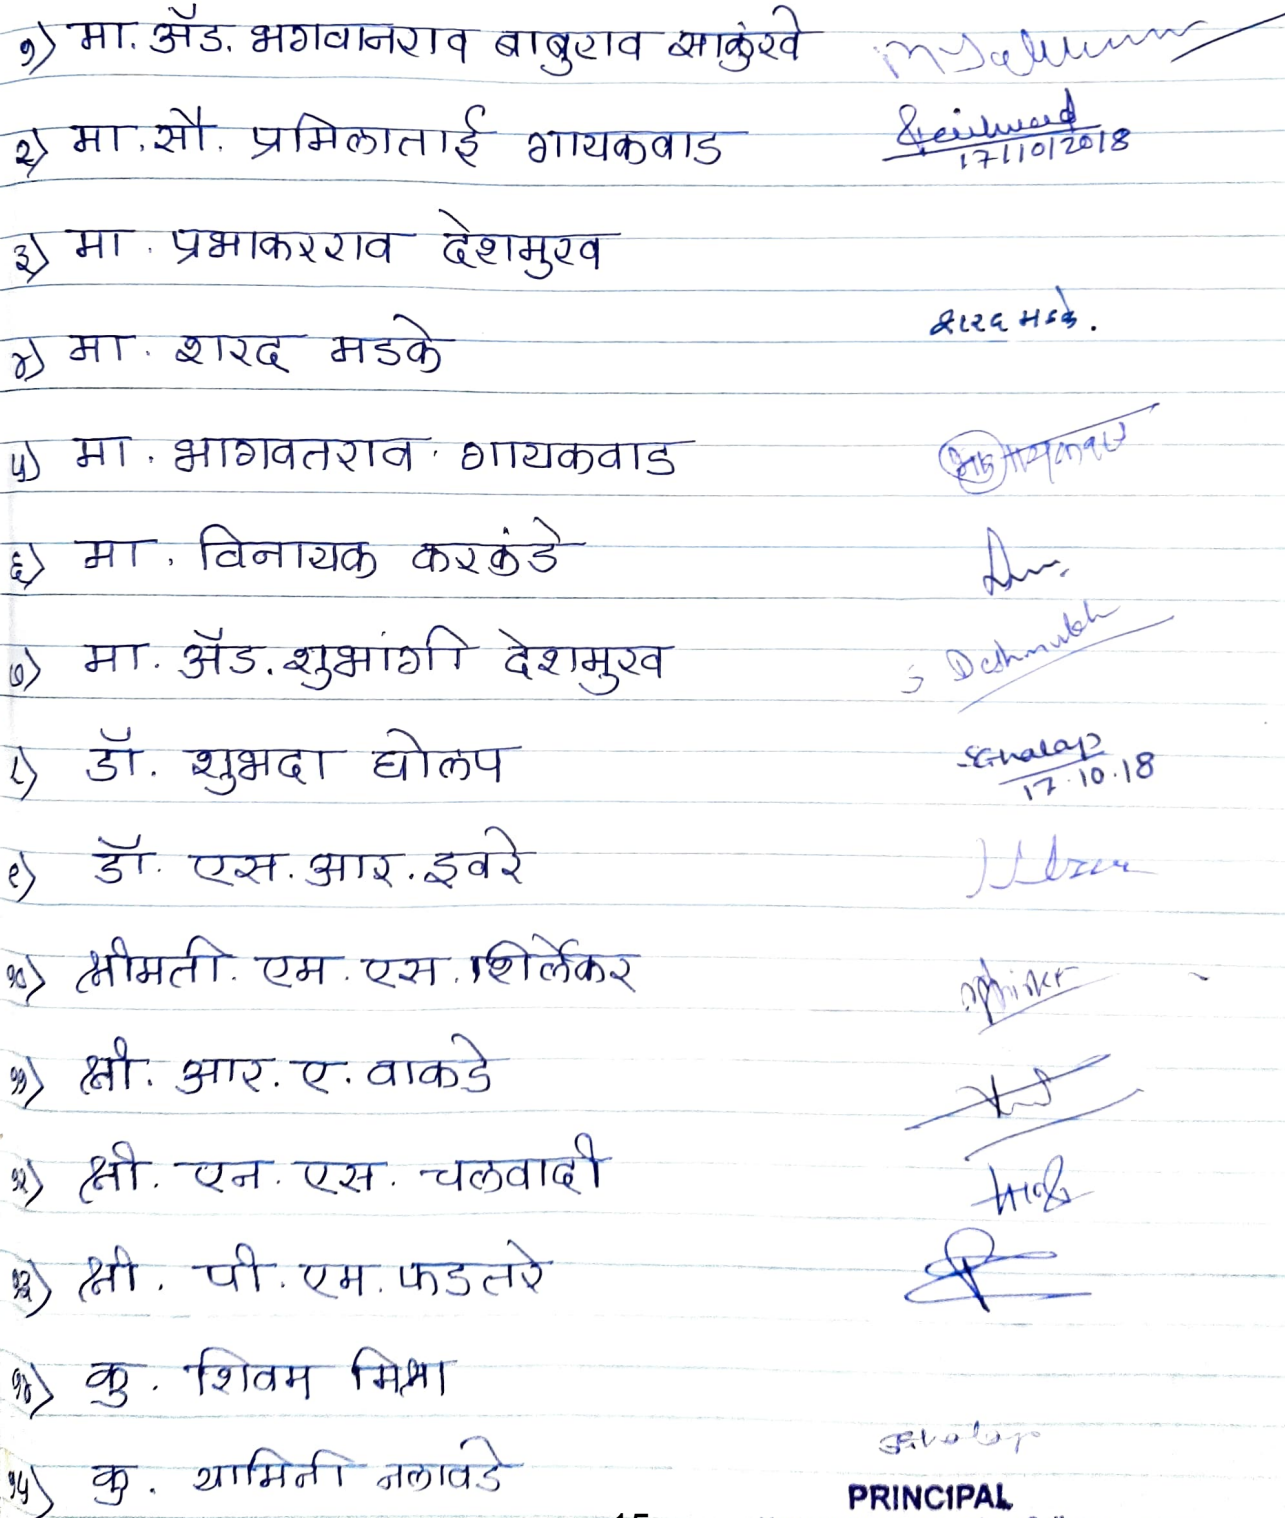 १) मा. ॲड. भगवानराव बाबुराव साळुंखे
२) मा. सौ. प्रमिलाताई गायकवाड 17/10/2018
३) मा. प्रभाकरराव देशमुख
४) मा. शरद मडके शरद मडके.
५) मा. भागवतराव. गायकवाड
६) मा. विनायक करकुंडे
७) मा. ॲड. शुभांगी देशमुख Deshmukh
८) डॉ. शुभदा घोलप SGholap 17.10.18
९) डॉ. एस. आर. इवरे
१०) श्रीमती. एम. एस. शिर्लेकर
११) श्री. आर. ए. वाकडे
१२) श्री. एन. एस. चलवादी
१३) श्री. पी. एम. फडतरे
१४) कु. शिवम मिश्रा
१५) कु. यामिनी नलावडे
PRINCIPAL